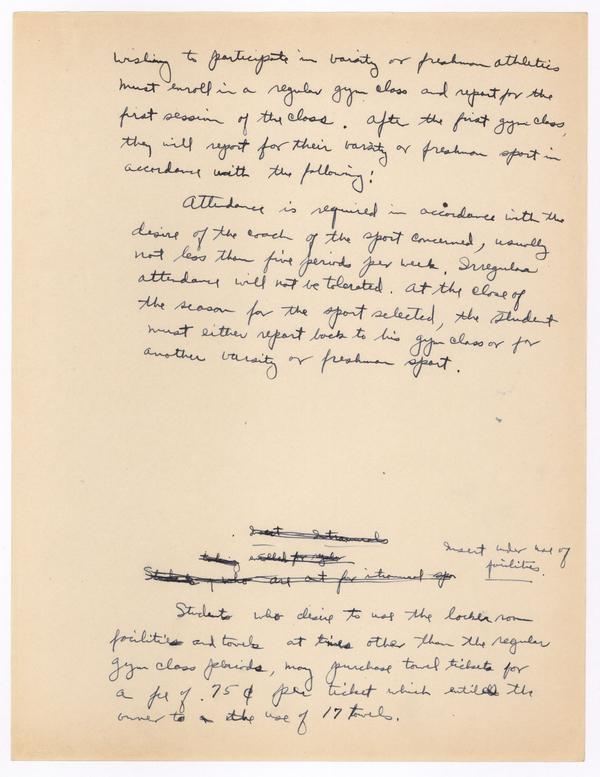 wishing to participate in varsity or freshman athletics
must enroll in a regular gym class and report for the
first session of the class. After the first gym class,
they will report for their varsity or freshman sport in
accordance with the following:
Attendance is required in accordance with the
desire of the coach of the sport concerned, usually
not less than five periods per week. Irregular
attendance will not be tolerated. At the close of
the season for the sport selected, the student
must either report back to his gym class or for
another varsity or freshman sport.
Insert Intramurals
Insert under use of
facilities.
Students who are out for
Students who desire to use the locker room
facilities and towels at times other than the regular
gym class periods, may purchase towel tickets for
a fee of .75¢ per ticket which entitles the
owner to the use of 17 towels.